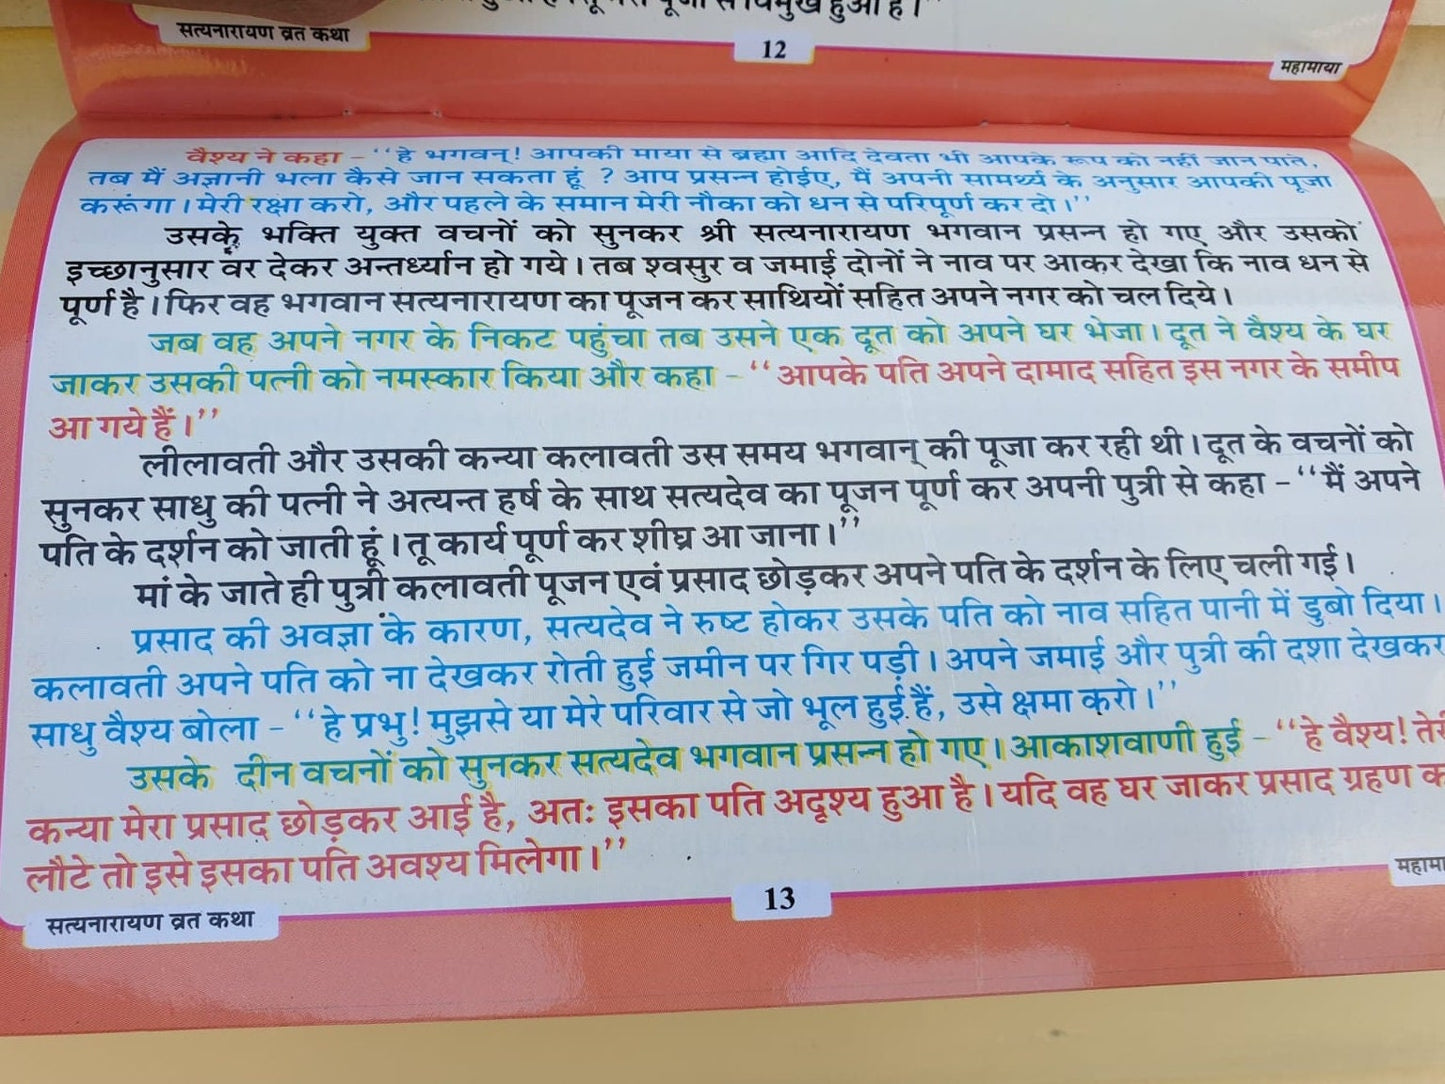 पूजा से विमुख हुआ है।"
सत्यनारायण व्रत कथा
12
महामाया
वैश्य ने कहा – ‘‘हे भगवन्! आपकी माया से ब्रह्मा आदि देवता भी आपके रूप को नहीं जान पाते,
तब मैं अज्ञानी भला कैसे जान सकता हूं ? आप प्रसन्न होईए, मैं अपनी सामर्थ्य के अनुसार आपकी पूजा
करूंगा। मेरी रक्षा करो, और पहले के समान मेरी नौका को धन से परिपूर्ण कर दो।’’
उसके भक्ति युक्त वचनों को सुनकर श्री सत्यनारायण भगवान प्रसन्न हो गए और उसको
इच्छानुसार वर देकर अन्तर्ध्यान हो गये। तब श्वसुर व जमाई दोनों ने नाव पर आकर देखा कि नाव धन से
पूर्ण है। फिर वह भगवान सत्यनारायण का पूजन कर साथियों सहित अपने नगर को चल दिये।
जब वह अपने नगर के निकट पहुंचा तब उसने एक दूत को अपने घर भेजा। दूत ने वैश्य के घर
जाकर उसकी पत्नी को नमस्कार किया और कहा – ‘‘आपके पति अपने दामाद सहित इस नगर के समीप
आ गये हैं।’’
लीलावती और उसकी कन्या कलावती उस समय भगवान् की पूजा कर रही थी। दूत के वचनों को
सुनकर साधु की पत्नी ने अत्यन्त हर्ष के साथ सत्यदेव का पूजन पूर्ण कर अपनी पुत्री से कहा – ‘‘मैं अपने
पति के दर्शन को जाती हूं। तू कार्य पूर्ण कर शीघ्र आ जाना।’’
मां के जाते ही पुत्री कलावती पूजन एवं प्रसाद छोड़कर अपने पति के दर्शन के लिए चली गई।
प्रसाद की अवज्ञा के कारण, सत्यदेव ने रुष्ट होकर उसके पति को नाव सहित पानी में डुबो दिया।
कलावती अपने पति को ना देखकर रोती हुई जमीन पर गिर पड़ी। अपने जमाई और पुत्री की दशा देखकर
साधु वैश्य बोला – ‘‘हे प्रभु! मुझसे या मेरे परिवार से जो भूल हुई हैं, उसे क्षमा करो।’’
उसके दीन वचनों को सुनकर सत्यदेव भगवान प्रसन्न हो गए। आकाशवाणी हुई – ‘‘हे वैश्य! तेरी
कन्या मेरा प्रसाद छोड़कर आई है, अतः इसका पति अदृश्य हुआ है। यदि वह घर जाकर प्रसाद ग्रहण क
लौटे तो इसे इसका पति अवश्य मिलेगा।’’
महामा
13
सत्यनारायण व्रत कथा